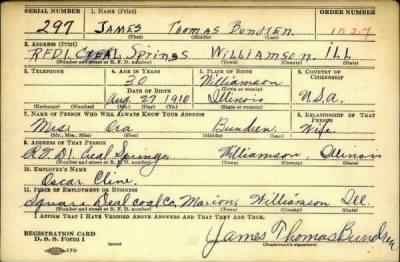 SERIAL NUMBER 1. NAME (Print)
297 JAMES Thomas Bundren
(First) (Middle) (Last)
2. ADDRESS (Print)
RFD1 Creal Springs Williamson ILL
(Town) (County) (State)
3. TELEPHONE 4. AGE IN YEARS 5. PLACE OF BIRTH 6. COUNTRY OF CITIZENSHIP
30 Williamson
DATE OF BIRTH (Town or county)
Aug. 27 1910 Illinois U.S.A.
(Exchange) (Number) (Mo.) (Day) (Yr.) (State or country)
7. NAME OF PERSON WHO WILL ALWAYS KNOW YOUR ADDRESS 8. RELATIONSHIP OF THAT PERSON
Mrs. Ora Bundren Wife
(Mr., Mrs., Miss) (First) (Middle) (Last)
9. ADDRESS OF THAT PERSON
R.F.D1. Creal Springs Williamson, Illinois
(Town) (County) (State)
10. EMPLOYER'S NAME
Oscar Cline
11. PLACE OF EMPLOYMENT OR BUSINESS
Square Deal coal Co. Marion, Williamson Ill.
(Town) (County) (State)
I AFFIRM THAT I HAVE VERIFIED ABOVE ANSWERS AND THAT THEY ARE TRUE.
REGISTRATION CARD
D. S. S. Form 1 James Thomas Bundren
(Registrant's signature)